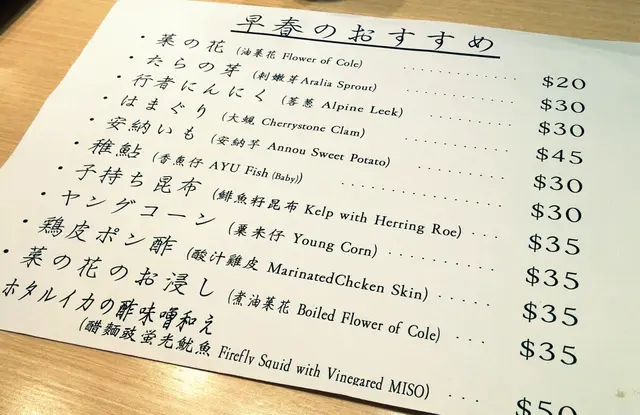 早春のおすすめ
・菜の花 (油菜花 Flower of Cole) ............ $20
・たらの芽 (刺嫩芽 Aralia Sprout) ............ $30
・行者にんにく (茖葱 Alpine Leek) ............ $30
・はまぐり (大蜆 Cherrystone Clam) ............ $45
・安納いも (安納芋 Annou Sweet Potato) ............ $30
・稚鮎 (香魚仔 AYU Fish (Baby)) ............ $30
・子持ち昆布 (鯡魚籽昆布 Kelp with Herring Roe) .... $35
・ヤングコーン (粟米仔 Young Corn) ............ $35
・鶏皮ポン酢 (酸汁雞皮 MarinatedChcken Skin) ..... $35
・菜の花のお浸し (煮油菜花 Boiled Flower of Cole) ... $35
・ホタルイカの酢味噌和え
(醋麵豉蛍光魷魚 Firefly Squid with Vinegared MISO) ... $50